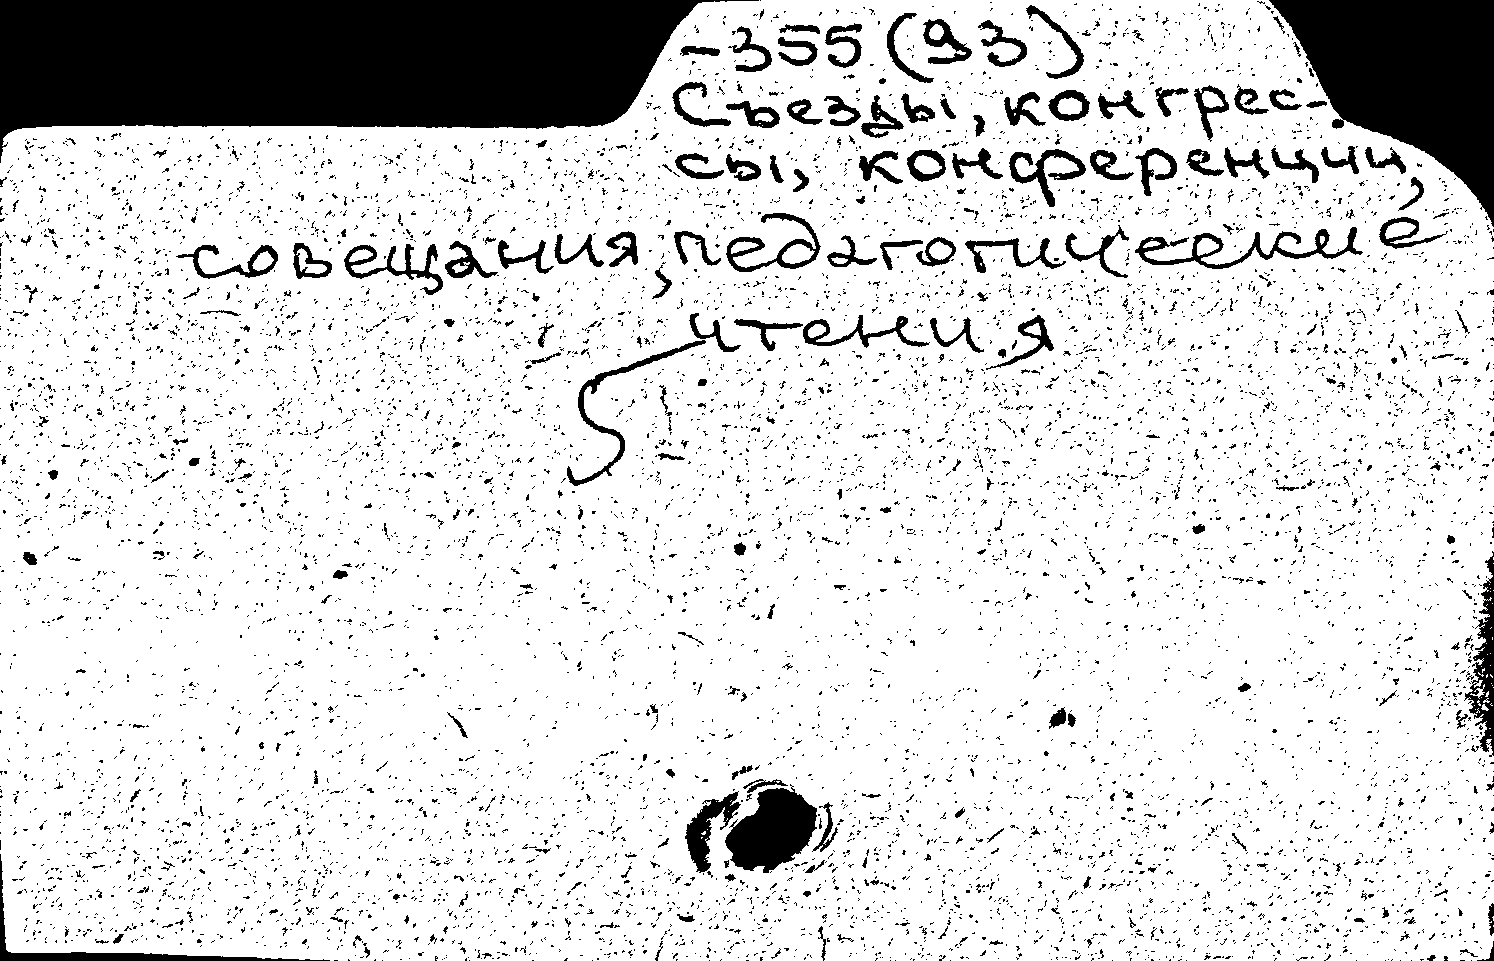 -355(93)
Съезды, конгрес-
сы, конференции,
совещания, педагогические
чтения